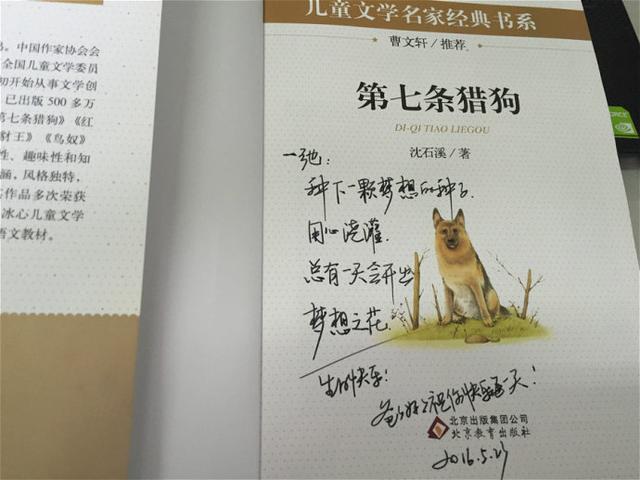 。中国作家协会会
全国儿童文学委员
初开始从事文学创
已出版 500 多万
第七条猎狗》《红
豺王》《鸟奴》
性、趣味性和知
涵，风格独特，
作品多次荣获
冰心儿童文学
语文教材。
儿童文学名家经典书系
曹文轩/推荐
第七条猎狗
DI-QI TIAO LIEGOU
沈石溪/著
一弛：
种下一颗梦想的种子.
用心浇灌.
总有一天会开出
梦想之花.
生日快乐！
祝你快乐每一天！
北京出版集团公司
北京教育出版社
2016.5.